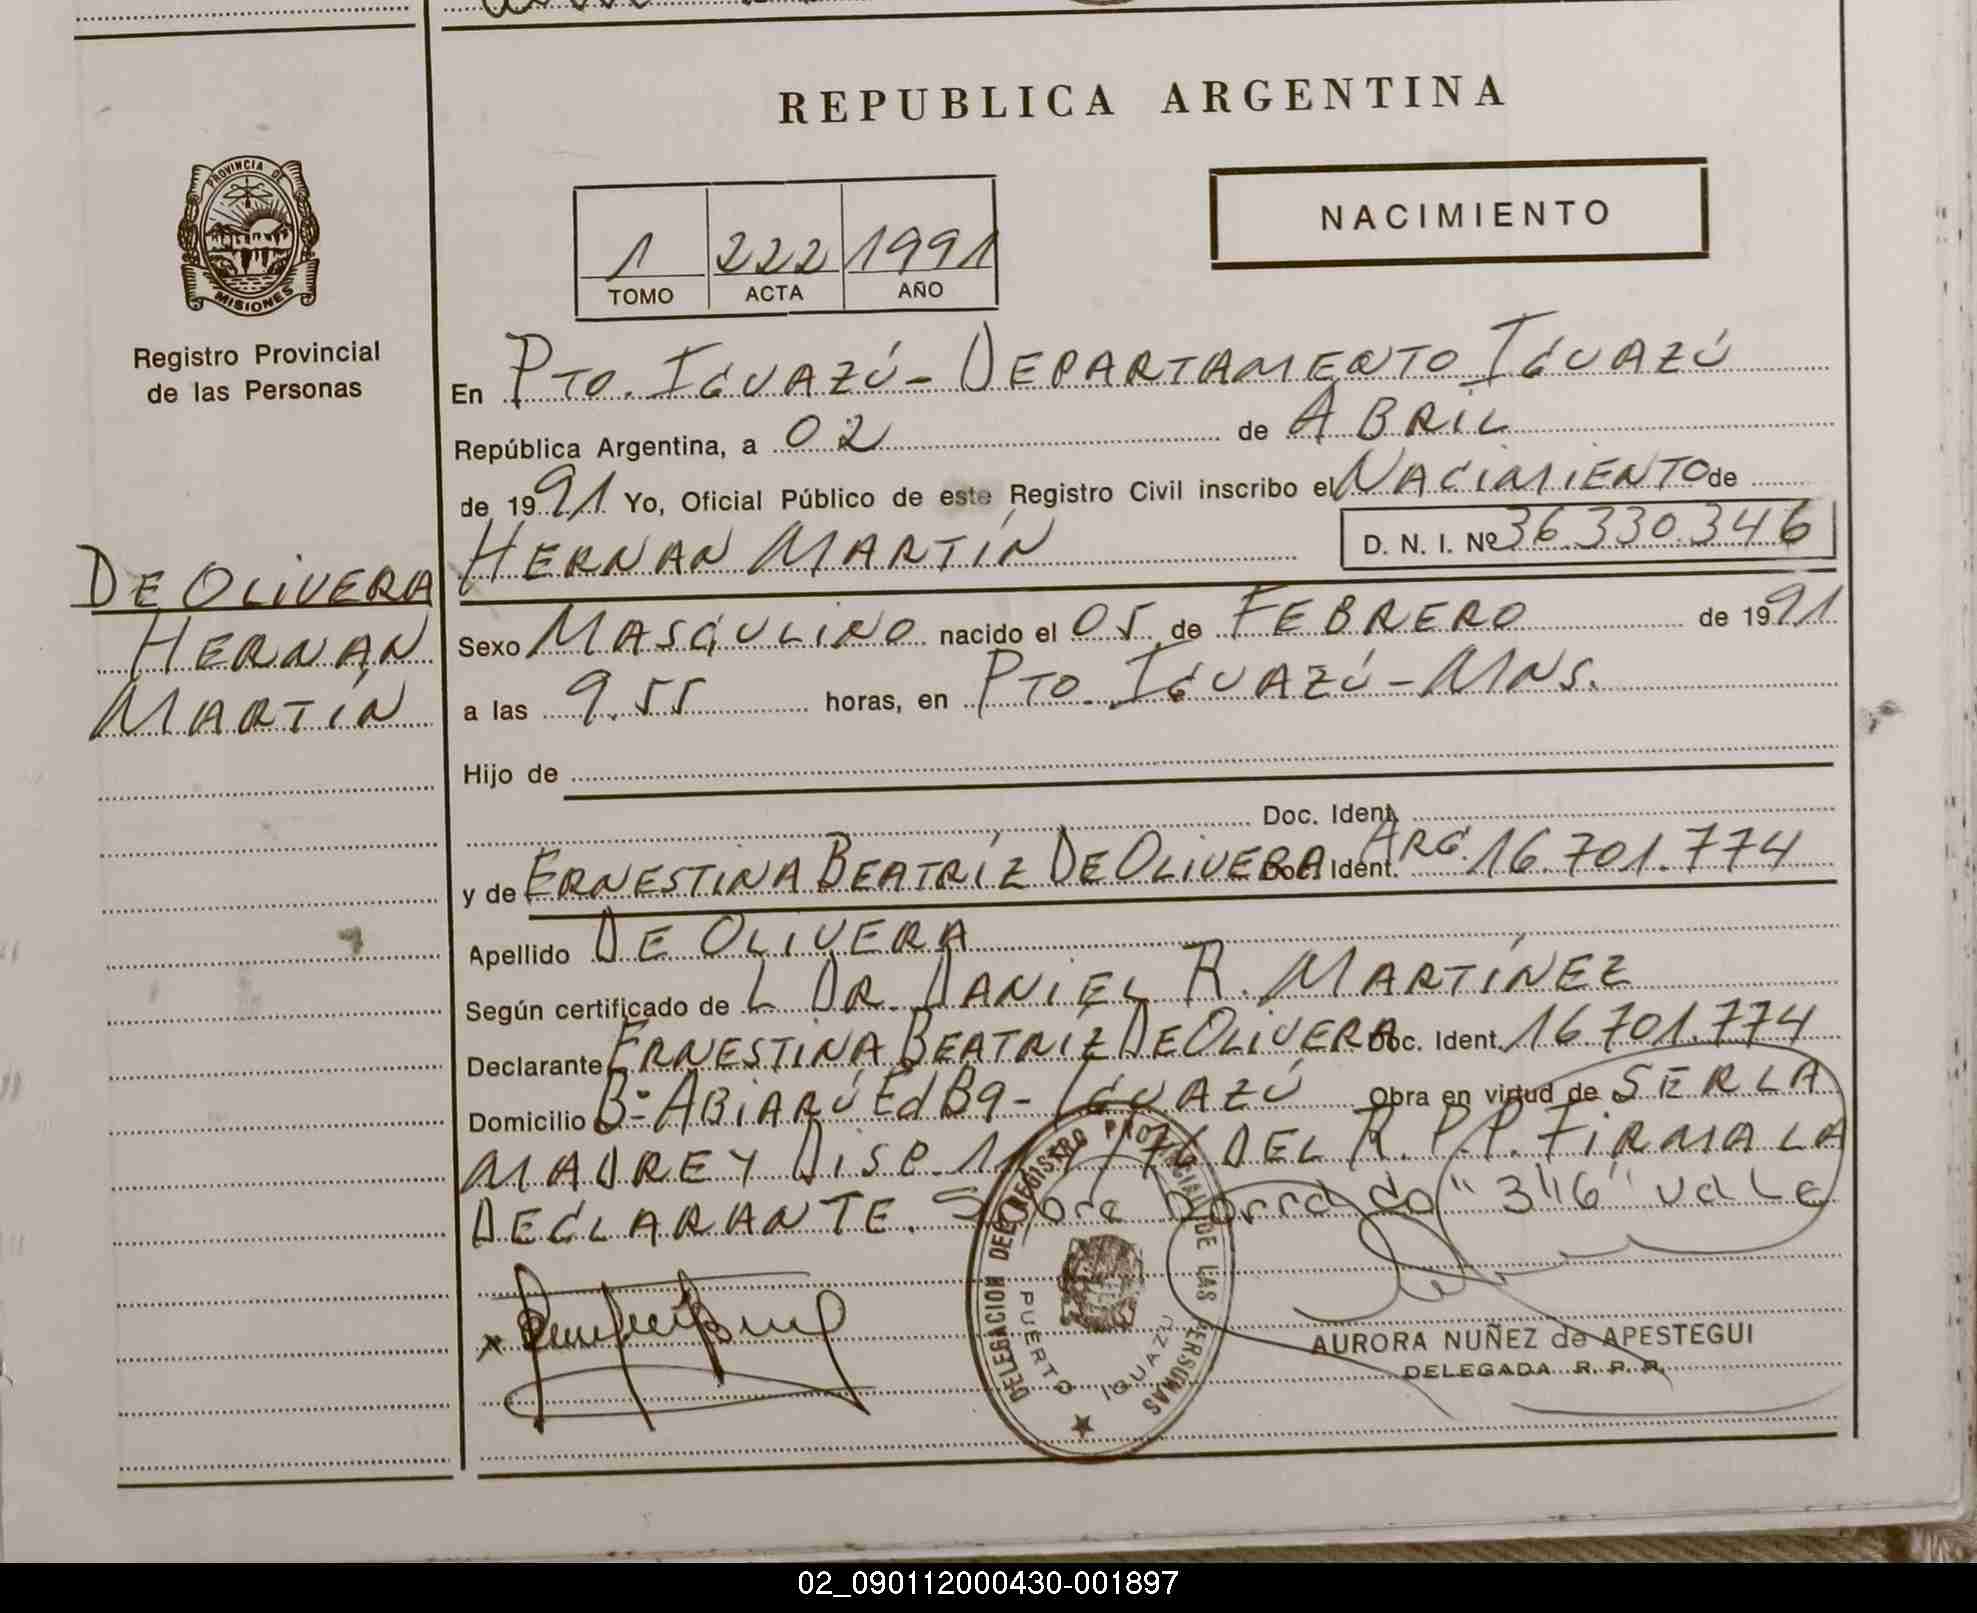 REPUBLICA ARGENTINA
PROVINCIA DE
MISIONES
Registro Provincial
de las Personas
NACIMIENTO
1 222 1991
TOMO ACTA AÑO
En Pto. Iguazú - Departamento Iguazú
República Argentina, a 02 de Abril
de 1991 Yo, Oficial Público de este Registro Civil inscribo el Nacimiento de
Hernan Martín D. N. I. Nº 36.330.346
De Olivera
Hernan
Martín
Sexo Masculino nacido el 05 de Febrero de 1991
a las 9.55 horas, en Pto. Iguazú - Mns.
Hijo de
Doc. Ident.
y de Ernestina Beatríz De Olivera Doc. Ident. Arg. 16.701.774
Apellido De Olivera
Según certificado de L Dr. Daniel R. Martínez
Declarante Ernestina Beatríz De Olivera Doc. Ident. 16.701.774
Domicilio Bº Abiarú Ed B9 - Iguazú Obra en virtud de ser la
madre y Disp. /76 del R.P.P. Firma la
declarante. Sobre borrado "346" vale
DELEGACION DEL REGISTRO PROVINCIAL DE LAS PERSONAS
PUERTO IGUAZU
AURORA NUÑEZ de APESTEGUI
DELEGADA R. P. P.
02_090112000430-001897